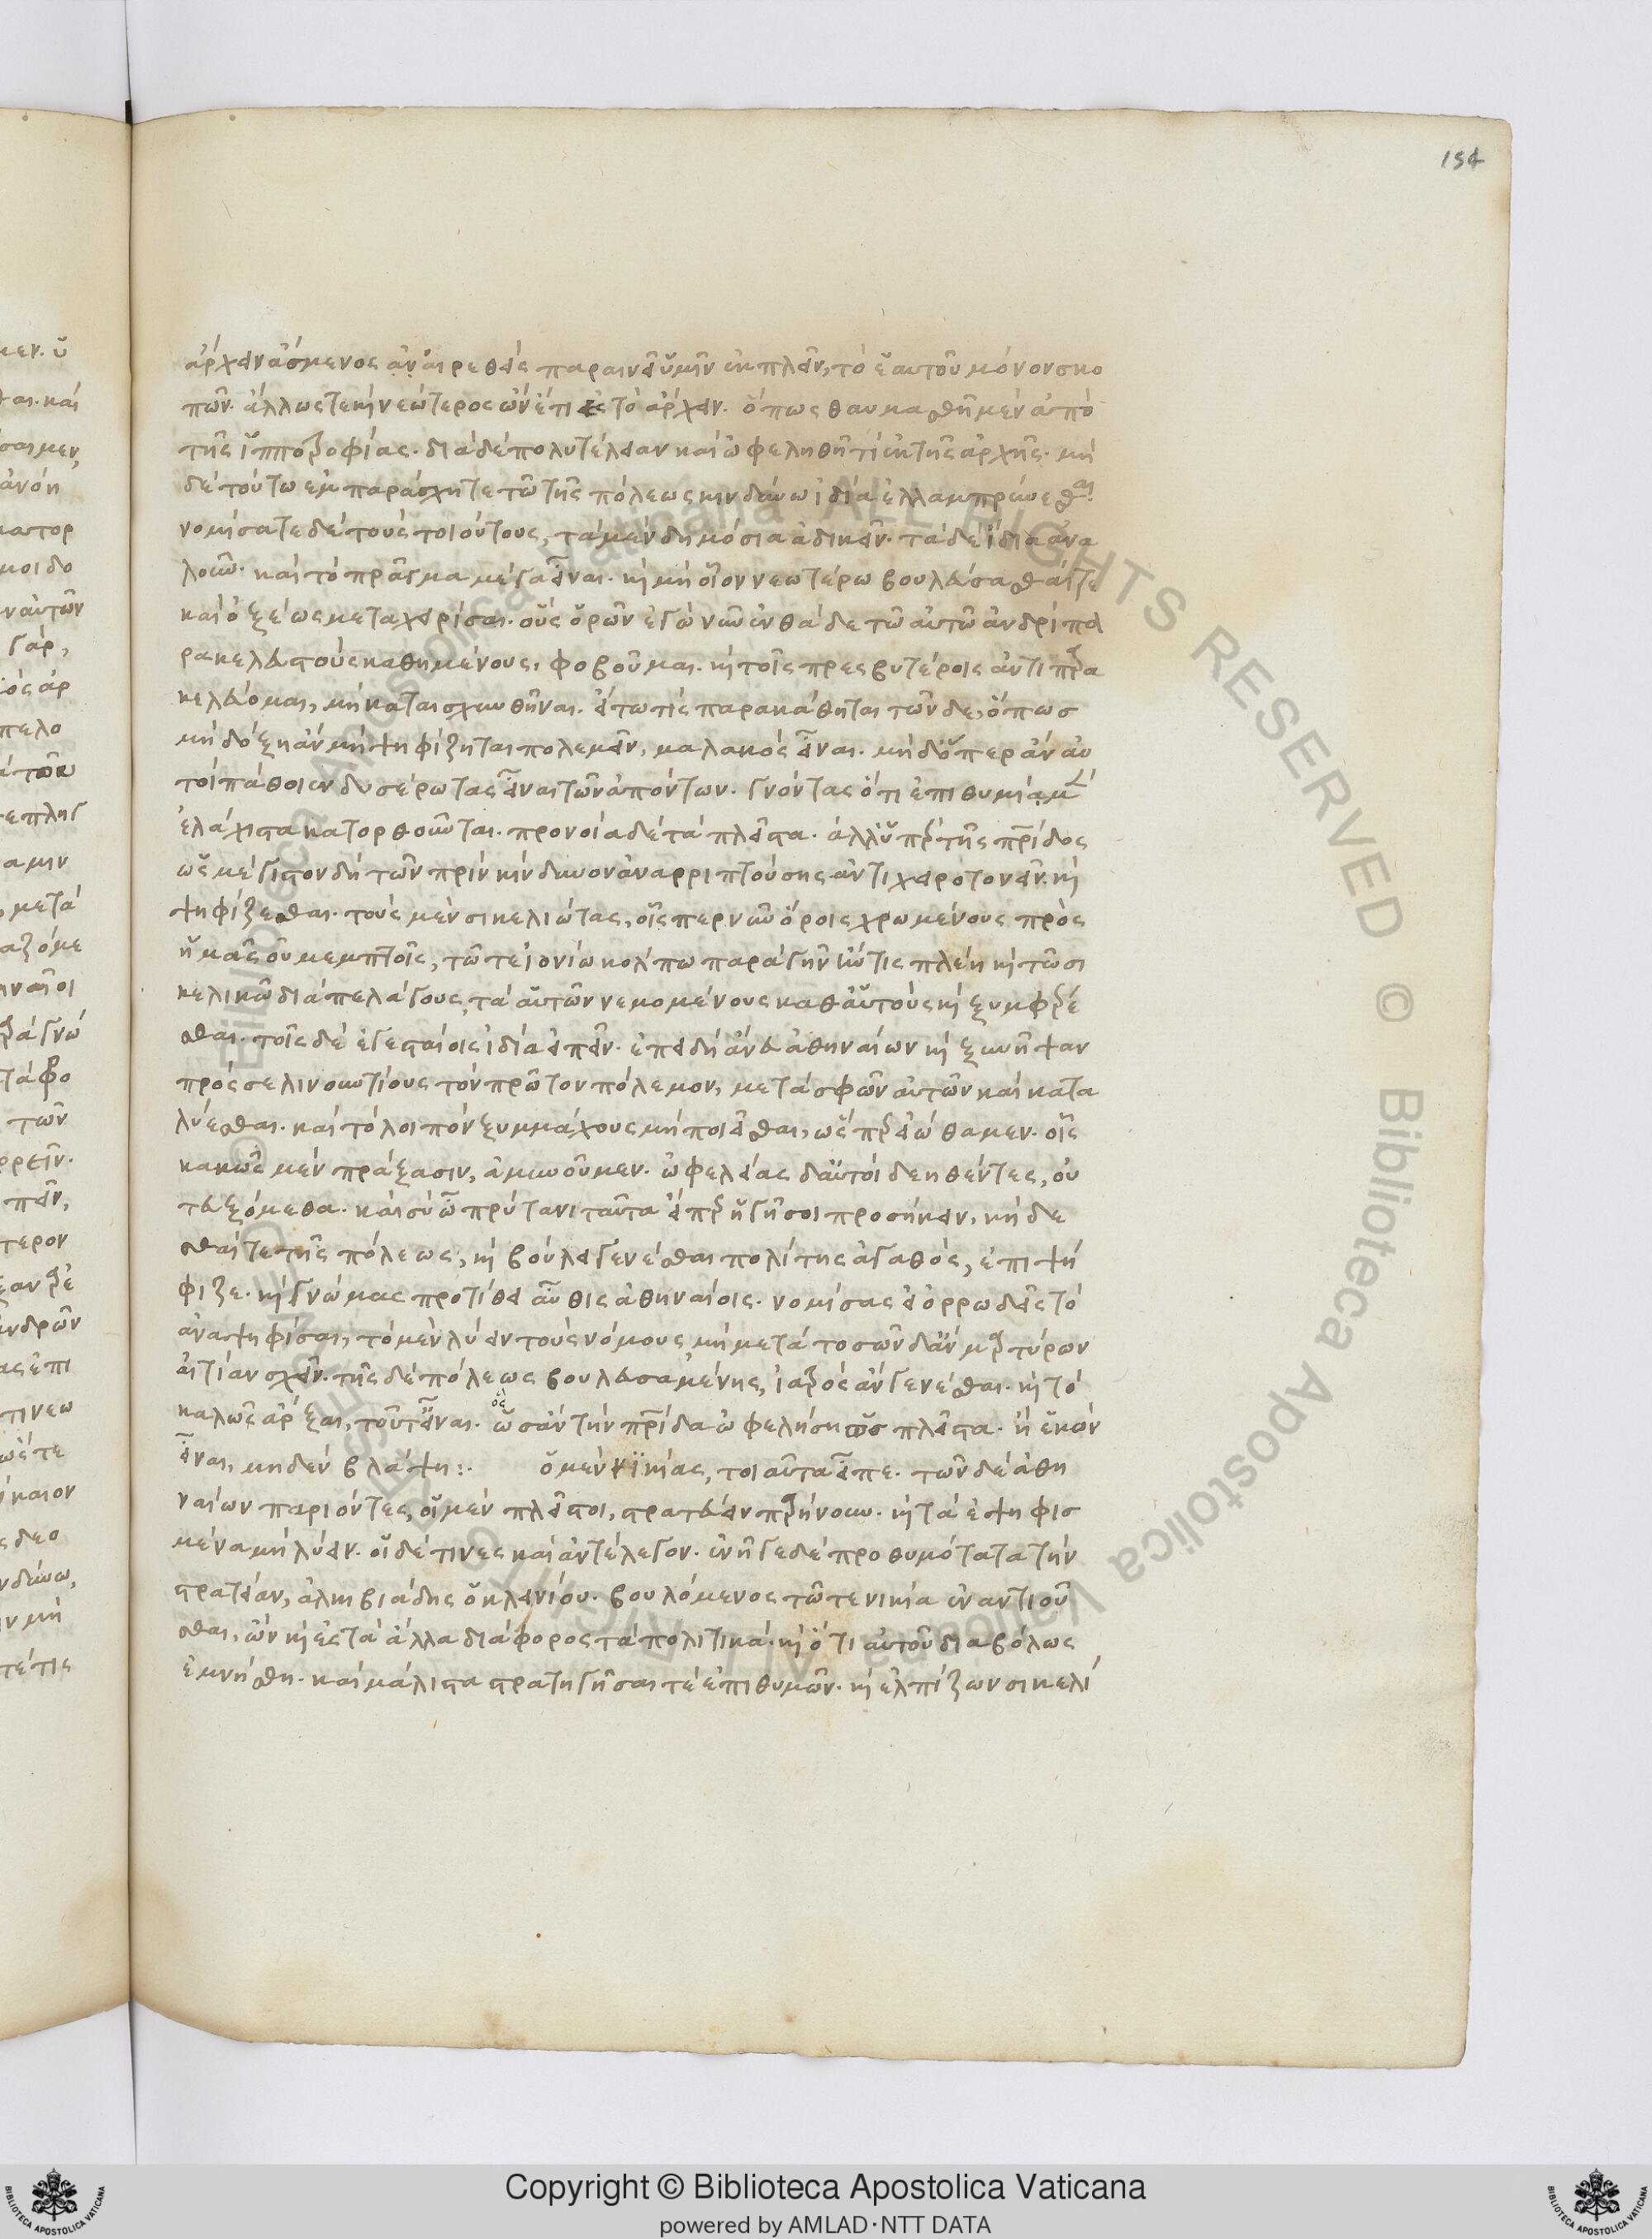 154
ἄρχειν ἄσμενος αἱρεθεὶς παραινεῖ ὑμῖν ἐκπλεῖν, τὸ ἑαυτοῦ μόνον σκο
πῶν. ἄλλως τε καὶ νεώτερος ὢν ἔτι ἐς τὸ ἄρχειν. ὅπως θαυμασθῆ μὲν ἀπὸ
τῆς ἱπποτροφίας. διὰ δὲ πολυτέλειαν καὶ ὠφεληθῆ τι ἐκ τῆς ἀρχῆς. μη
δὲ τούτω ἐμπαράσχητε τῶ τῆς πόλεως κινδύνω ἰδία ἐλλαμπρύνεσθαι.
νομίσατε δὲ τοὺς τοιούτους, τὰ μὲν δημόσια ἀδικεῖν. τὰ δὲ ἴδια ἀνα
λοῦν. καὶ τὸ πρᾶγμα μέγα εἶναι. καὶ μὴ οἷον νεωτέρω βουλεύσασθαί τε
καὶ ὀξέως μεταχειρίσαι. οὓς ὁρῶν ἐγὼ νῦν ἐνθάδε τῶ αὐτῶ ἀνδρὶ πα
ρακελευστοὺς καθημένους, φοβοῦμαι. καὶ τοῖς πρεσβυτέροις ἀντιπαρα
κελεύομαι, μὴ καταισχυνθῆναι. εἴ τω τὶς παρακάθηται τῶνδε, ὅπως
μὴ δόξη ἂν μὴ ψηφίζηται πολεμεῖν, μαλακὸς εἶναι. μηδ' ὅπερ ἂν αὐ
τοὶ πάθοιεν δυσέρωτας εἶναι τῶν ἀπόντων. γνόντας ὅτι ἐπιθυμία μὲν
ἐλάχιστα κατορθοῦνται. προνοία δὲ τὰ πλεῖστα. ἀλλ' ὑπὲρ τῆς πατρίδος
ὡς μέγιστον δὴ τῶν πρὶν κίνδυνον ἀναρριπτούσης ἀντιχειροτονεῖν. καὶ
ψηφίζεσθαι. τοὺς μὲν σικελιώτας, οἷσπερ νῦν ὅροις χρωμένους πρὸς
ἡμᾶς οὐ μεμπτοῖς, τῶ τε ἰονίω κόλπω παρὰ γῆν ἤν τις πλέη καὶ τῶ σι
κελικῶ διὰ πελάγους, τὰ αὑτῶν νεμομένους καθ' αὑτοὺς καὶ ξυμφέρε
σθαι. τοῖς δὲ ἐγεσταίοις ἰδία εἰπεῖν. ἐπειδὴ ἄνευ ἀθηναίων καὶ ξυνῆψαν
πρὸς σελινουντίους τὸν πρῶτον πόλεμον, μετὰ σφῶν αὐτῶν καὶ κατα
λύεσθαι. καὶ τὸ λοιπὸν ξυμμάχους μὴ ποιεῖσθαι, ὥσπερ εἰώθαμεν. οἷς
κακῶς μὲν πράξασιν, ἀμυνοῦμεν. ὠφελείας δ' αὐτοὶ δεηθέντες, οὐ
τευξόμεθα. καὶ σὺ ὦ πρύτανι ταῦτα εἴπερ ἡγῆ σοι προσήκειν, κήδε
σθαί τε τῆς πόλεως, καὶ βούλει γενέσθαι πολίτης ἀγαθός, ἐπιψή
φιζε. καὶ γνώμας προτίθει αὖθις ἀθηναίοις. νομίσας εἰ ὀρρωδεῖς τὸ
ἀναψηφίσαι, τὸ μὲν λύειν τοὺς νόμους, μὴ μετὰ τοσῶνδ' ἂν μαρτύρων
αἰτίαν σχεῖν. τῆς δὲ πόλεως βουλευσαμένης, ἰατρὸς ἂν γενέσθαι. καὶ τὸ
καλῶς ἄρξαι, τοῦτ' εἶναι. ὃς ἂν τὴν πατρίδα ὠφελήση ὡς πλεῖστα. ἢ ἑκὼν
εἶναι, μηδὲν βλάψη :. ὁ μὲν νικίας, τοιαῦτα εἶπε. τῶν δὲ ἀθη
ναίων παριόντες, οἱ μὲν πλεῖστοι, στρατεύειν παρήνουν. καὶ τὰ ἐψηφισ
μένα μὴ λύειν. οἱ δέ τινες καὶ ἀντέλεγον. ἐνῆγε δὲ προθυμότατα τὴν
στρατείαν, ἀλκιβιάδης ὁ κλεινίου. βουλόμενος τῶ τε νικία ἐναντιοῦ
σθαι, ὢν καὶ ἐς τὰ ἄλλα διάφορος τὰ πολιτικά. καὶ ὅτι αὐτοῦ διαβόλως
ἐμνήσθη. καὶ μάλιστα στρατηγῆσαί τε ἐπιθυμῶν. καὶ ἐλπίζων σικελί
Copyright © Biblioteca Apostolica Vaticana
powered by AMLAD·NTT DATA